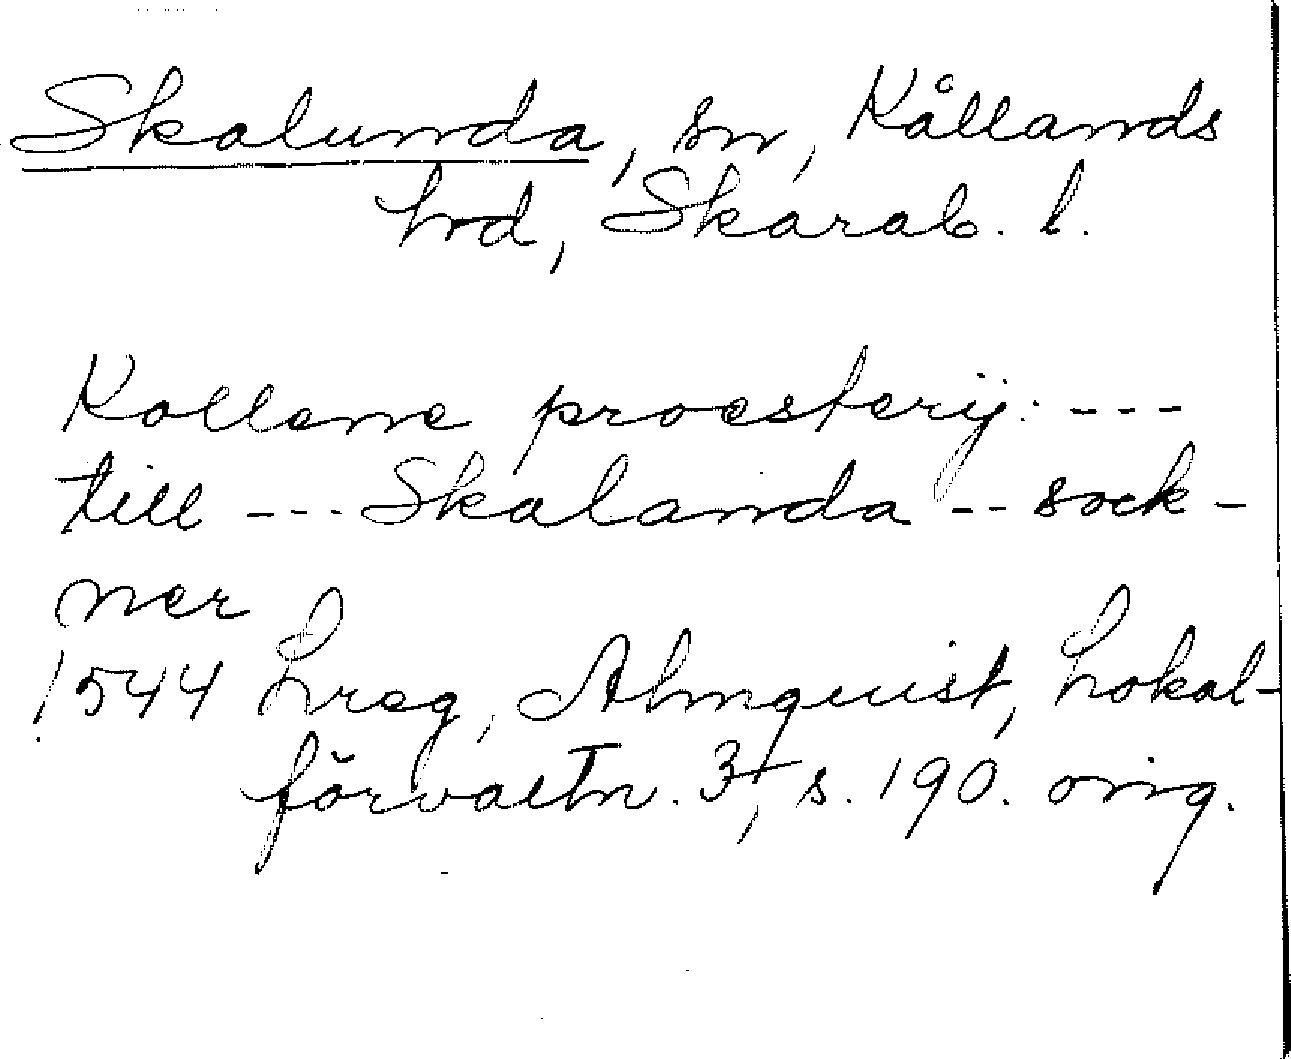 Skalunda, sn, Kållands
hrd, Skarab. l.
Kollene proesterij: ---
till --- Skalanda -- sock-
ner
1544 Lreg, Almquist, Lokal-
förvaltn. 3, s. 190. orig.